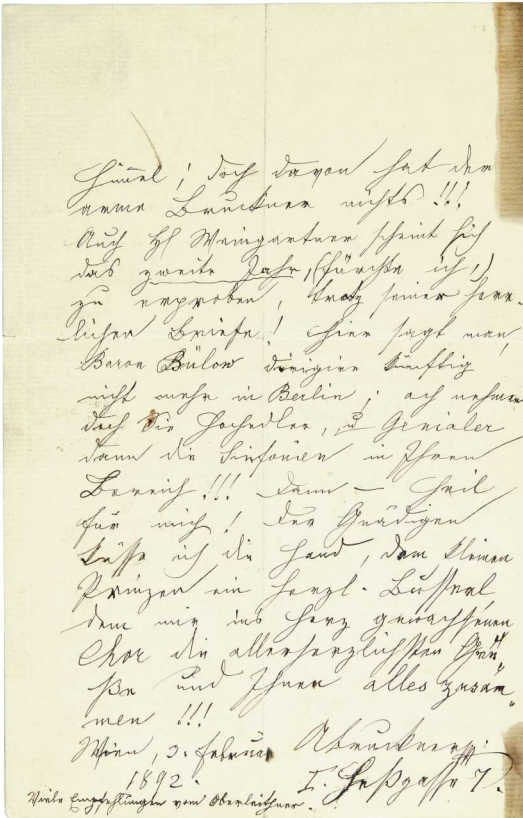 Himel; doch davon hat der
arme Bruckner nichts!!!
Auch H Weingartner scheint sich
das zweite Jahr, (fürchte ich,)
zu erproben, trotz seiner herr-
lichen Briefe! Hier sagt man,
Baron Bülow dirigire künftig
nicht mehr in Berlin; ach nehmen
doch Sie Hochedler, u Genialer
dann die Sinfonien in Ihren
Bereich!!! Dann — Heil
für mich! Der Gnädigen
küsse ich die Hand, dem kleinen
Prinzen ein herzl. Busserl,
dem mir ins Herz gewachsenen
Chor die allerherzlichsten Grü„
ße und Ihnen alles zusam„
men!!!
Wien, 3. Februar ABruckner
1892. I. Heßgasse 7.
Viele Empfehlungen vom Oberleithner.